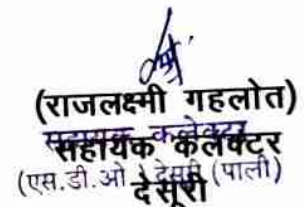 (राजलक्ष्मी गहलोत)
सहायक कलेक्टर
सहायक कलेक्टर
(एस.डी.ओ देसूरी (पाली)
देसूरी